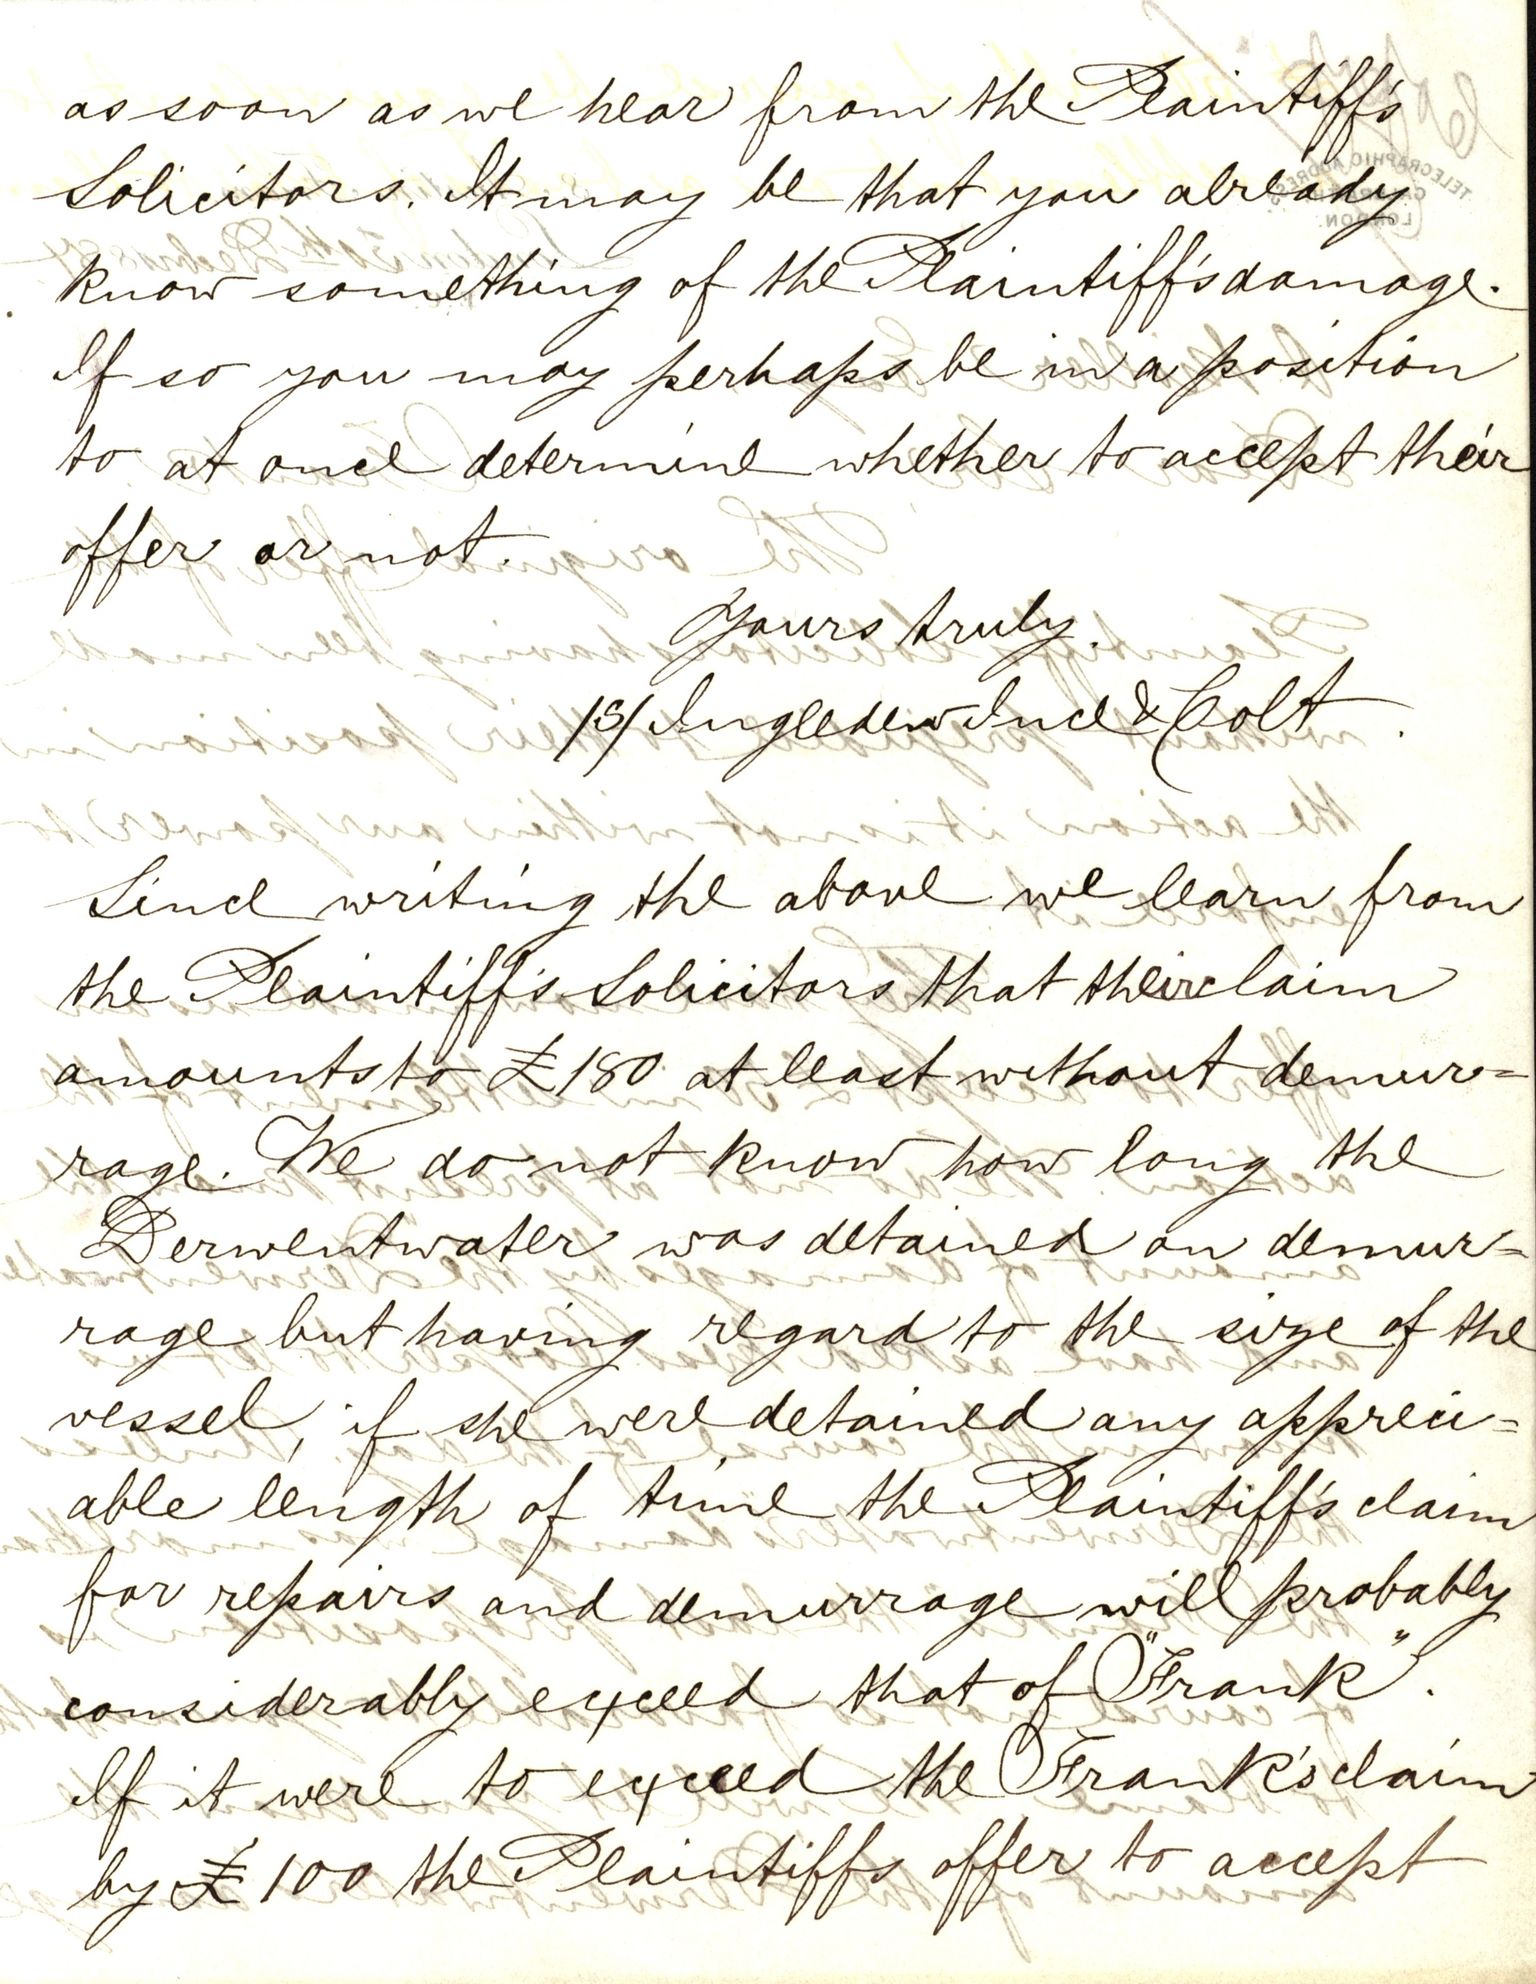 as soon as we hear from the Plaintiff's
Solicitors. It may be that you already
know something of the Plaintiff's damage.
If so you may perhaps be in a position
to at once determine whether to accept their
offer or not.
Yours truly.
/S/ Ingledew Ince & Colt.
Since writing the above we learn from
the Plaintiff's Solicitors that their claim
amounts to £180 at least without demur=
rage. We do not know how long the
Derwentwater was detained on demur=
rage but having regard to the size of the
vessel, if she were detained any appreci=
able length of time the Plaintiff's claim
for repairs and demurrage will probably
considerably exceed that of "Frank".
If it were to exceed the Frank's claim
by £100 the Plaintiffs offer to accept
TELEGRAPHIC ADDRESS
LONDON.